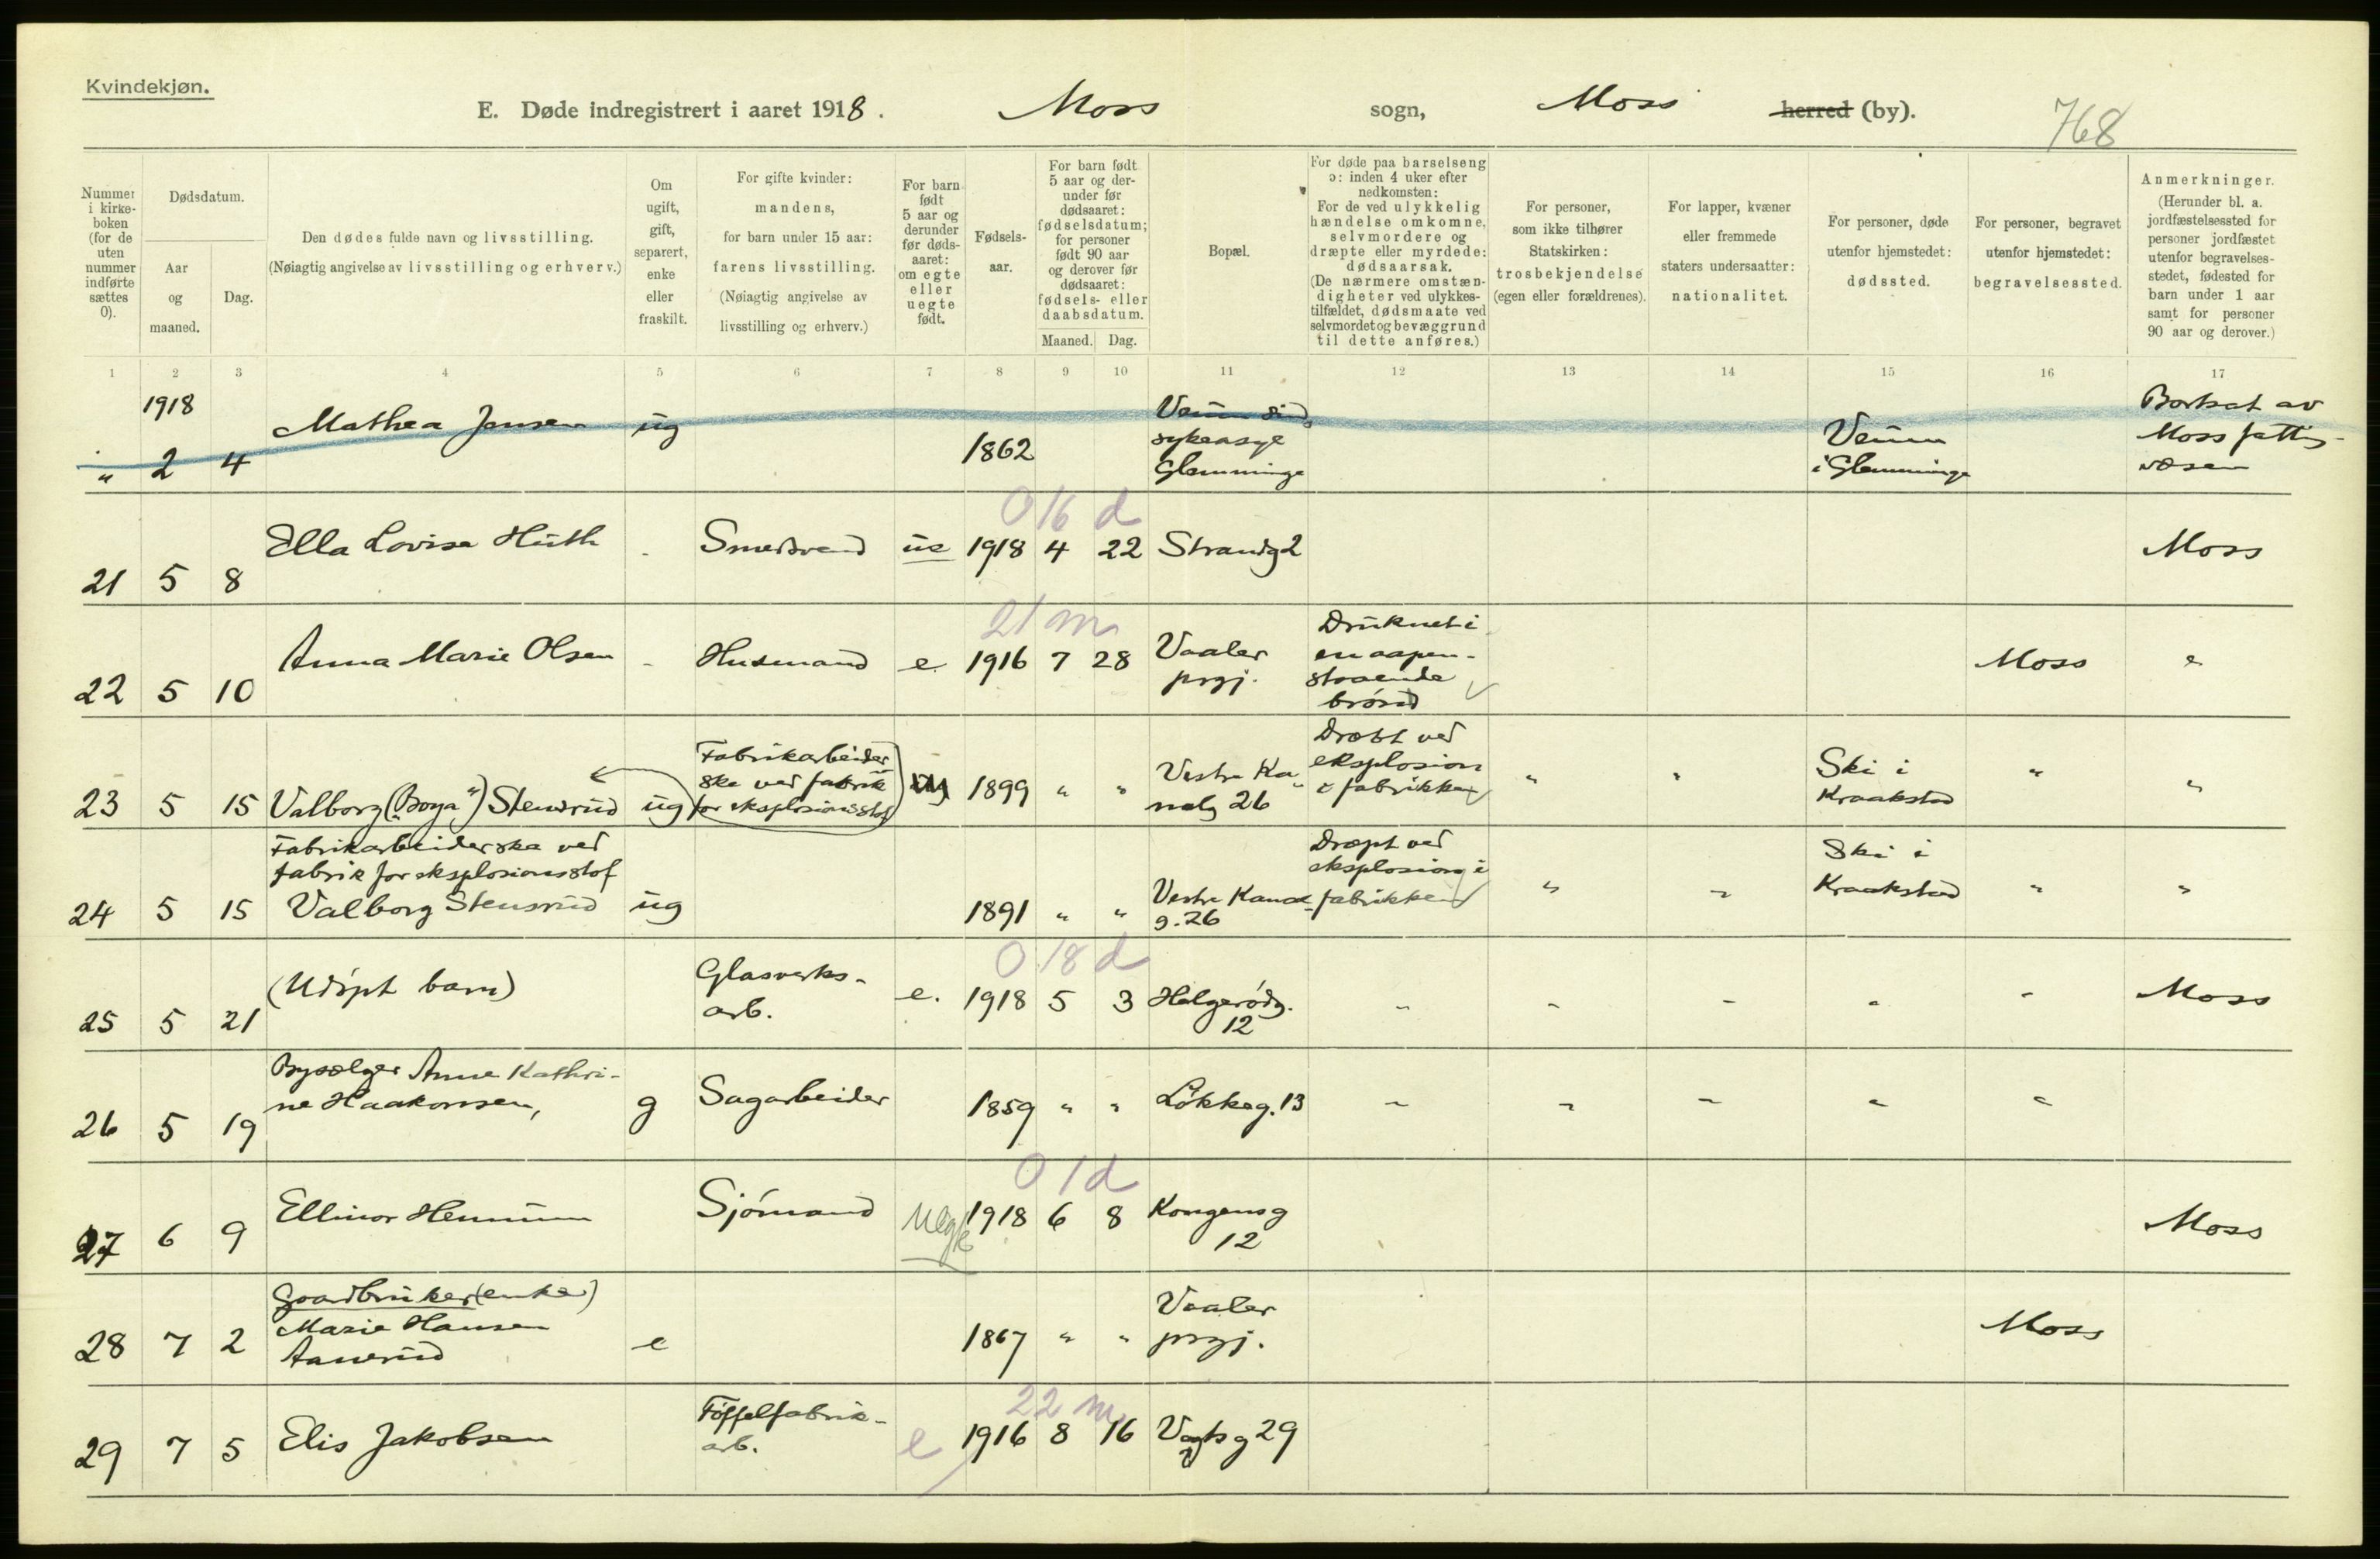 Kvindekjøn.
E. Døde indregistrert i aaret 1918. Moss sogn, Moss herred (by). 768
Nummer i kirke-boken (for de uten nummer indførte sættes 0).
Dødsdatum.
Aar og maaned.
Dag.
Den dødes fulde navn og livsstilling.
(Nøiagtig angivelse av livsstilling og erhverv.)
Om ugift, gift, separert, enke eller fraskilt.
For gifte kvinder: mandens, for barn under 15 aar: farens livsstilling.
(Nøiagtig angivelse av livsstilling og erhverv.)
For barn født 5 aar og derunder før døds-aaret: om egte eller uegte født.
Fødsels-aar.
For barn født 5 aar og der-under før dødsaaret: fødselsdatum; for personer født 90 aar og derover før dødsaaret: fødsels- eller daabsdatum.
Maaned. Dag.
Bopæl.
For døde paa barselseng ɔ: inden 4 uker efter nedkomsten:
For de ved ulykkelig hændelse omkomne, selvmordere og dræpte eller myrdede: dødsaarsak.
(De nærmere omstæn-digheter ved ulykkes-tilfældet, dødsmaate ved selvmordet og bevæggrund til dette anføres.)
For personer, som ikke tilhører Statskirken: trosbekjendelse (egen eller forældrenes).
For lapper, kvæner eller fremmede staters undersaatter: nationalitet.
For personer, døde utenfor hjemstedet: dødssted.
For personer, begravet utenfor hjemstedet: begravelsessted.
Anmerkninger.
(Herunder bl. a. jordfæstelsessted for personer jordfæstet utenfor begravelses-stedet, fødested for barn under 1 aar samt for personer 90 aar og derover.)
1 2 3 4 5 6 7 8 9 10 11 12 13 14 15 16 17
1918
" 2 4 Mathea Jensen ug 1862 Veum sind sykeasyl Glemminge Veum i Glemminge Bortsat av Moss fattig-væsen
0 16 d
21 5 8 Ella Lovise Huth - Smedsvend ue 1918 4 22 Strandg 2 Moss
21 m
22 5 10 Anna Marie Olsen - Husmand e. 1916 7 28 Vaaler prgj. Druknet i en aapen-staaende brønd Moss "
23 5 15 Valborg ("Boya") Stensrud ug Fabrikarbeider ske ved fabrik for eksplosionsstof 1899 " " Vestre Ka nalg 26 Dræbt ved eksplosion i fabrikken " " Ski i Kraakstad " "
24 5 15 Fabrikarbeiderske ved fabrik for eksplosionsstof Valborg Stensrud ug 1891 " " Vestre Kanal g. 26 Dræpt ved eksplosion i fabrikken " " Ski i Kraakstad " "
0 18 d
25 5 21 (Udøpt barn) Glasverks-arb. e. 1918 5 3 Helgerødg. 12 - - - - - Moss
26 5 19 Bysælger Anne Kathri-ne Haakonsen, g Sagarbeider 1859 " " Løkkeg. 13 - - - - -
0 1 d
27 6 9 Ellinor Hennum Sjømand uegte 1918 6 8 Kongensg 12 Moss
28 7 2 Gaardbruker (enke) Marie Hansen Aanerud e 1867 " " Vaaler prgj. Moss
22 m
29 7 5 Elis Jakobsen Tøffelfabrik-arb. e 1916 8 16 Vogtsg 29